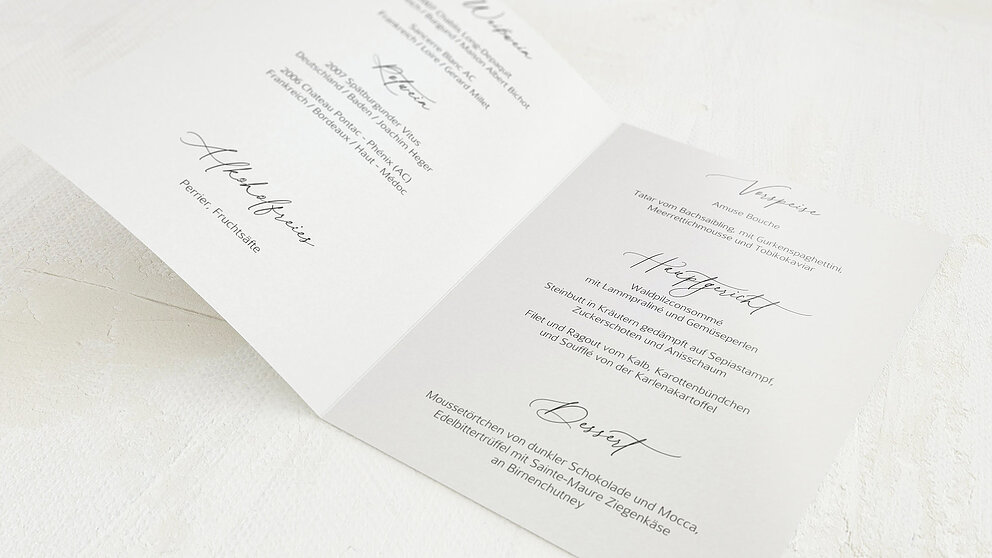 Weißwein
Chablis, Long-Depaquit
/ Burgund / Maison Albert Bichot
Sancerre Blanc AC
Frankreich / Loire / Gerard Millet
Rotwein
2007 Spätburgunder Vitus
Deutschland / Baden / Joachim Heger
2006 Chateau Pontac - Phénix (AC)
Frankreich / Bordeaux / Haut - Médoc
Alkoholfreies
Perrier, Fruchtsäfte
Vorspeise
Amuse Bouche
Tatar vom Bachsaibling, mit Gurkenspaghettini,
Meerrettichmousse und Tobikokaviar
Hauptgericht
Waldpilzconsommé
mit Lammpraliné und Gemüseperlen
Steinbutt in Kräutern gedämpft auf Sepiastampf,
Zuckerschoten und Anisschaum
Filet und Ragout vom Kalb, Karottenbündchen
und Soufflé von der Karlenakartoffel
Dessert
Moussetörtchen von dunkler Schokolade und Mocca,
Edelbittertrüffel mit Sainte-Maure Ziegenkäse
an Birnenchutney